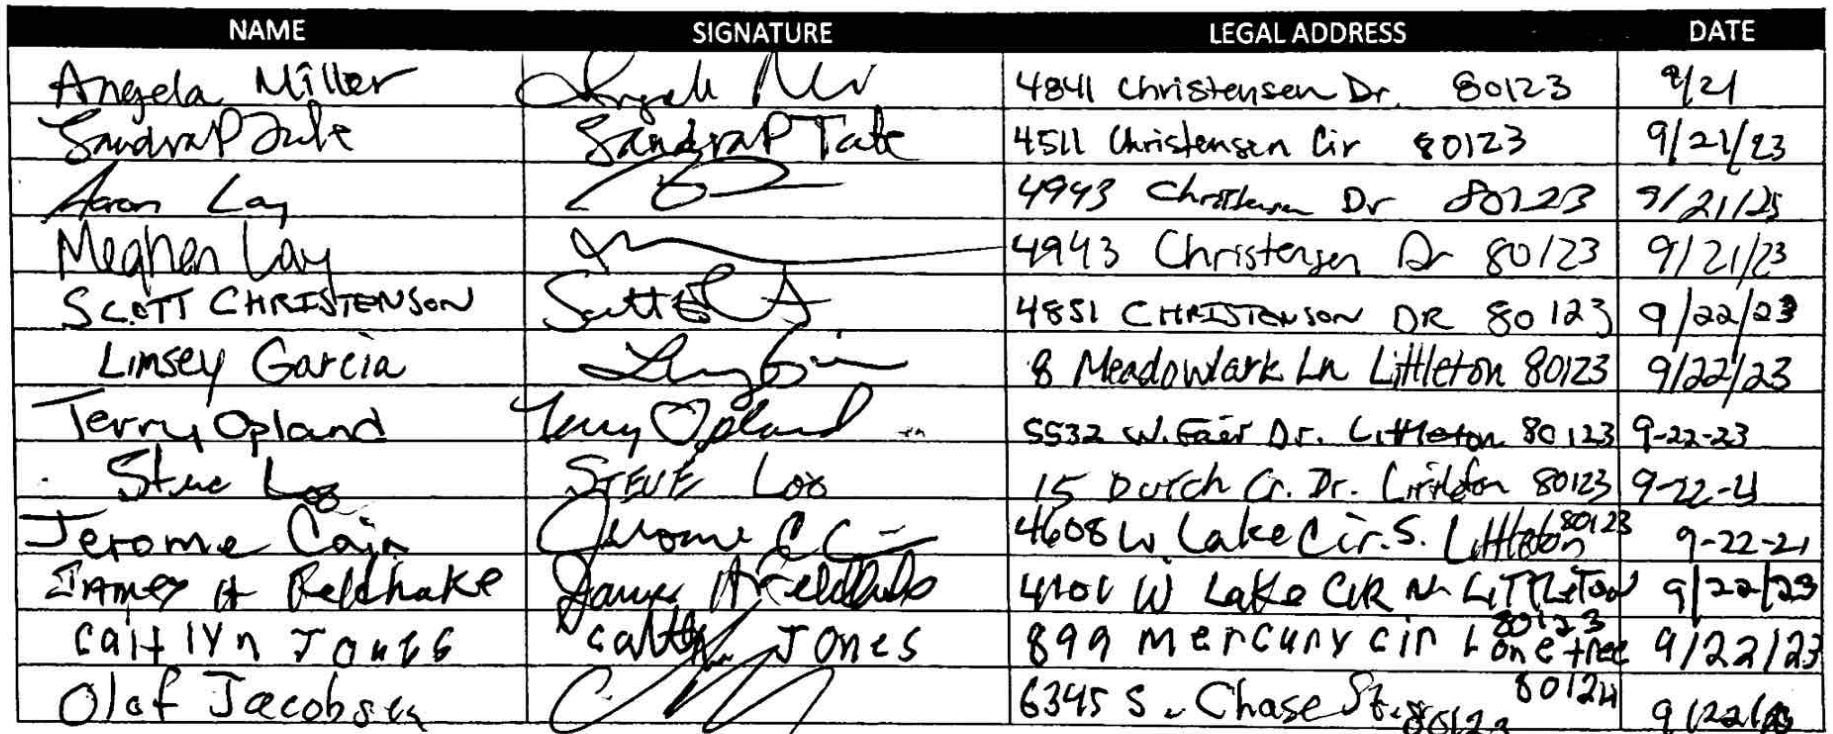 NAME SIGNATURE LEGAL ADDRESS DATE
Angela Miller 4841 Christensen Dr. 80123 9/21
Sandra P Tate Sandra P Tate 4511 Christensen Cir 80123 9/21/23
Aaron Lay 4943 Christensen Dr 80123 9/21/23
Meghen Lay 4943 Christensen Dr 80123 9/21/23
SCOTT CHRISTENSON 4851 CHRISTENSON DR 80123 9/22/23
Linsey Garcia 8 Meadowlark Ln Littleton 80123 9/22/23
Terry Opland Terry Opland 5532 W. Fair Dr. Littleton 80123 9-22-23
Steve Loo STEVE Loo 15 Dutch Cr. Dr. Littleton 80123 9-22-
Jerome Cain Jerome C 4608 W. Lake Cir. S. Littleton 80123 9-22-21
James H Feldhake James H Feldhake W Lake CIR N LITTLETON 9/22/23
80123
Caitlyn Jones Jones 899 Mercury cir Lone tree 9/22/23
80124
Olof Jacobsen 6345 S. Chase St. 80123 9/22/23